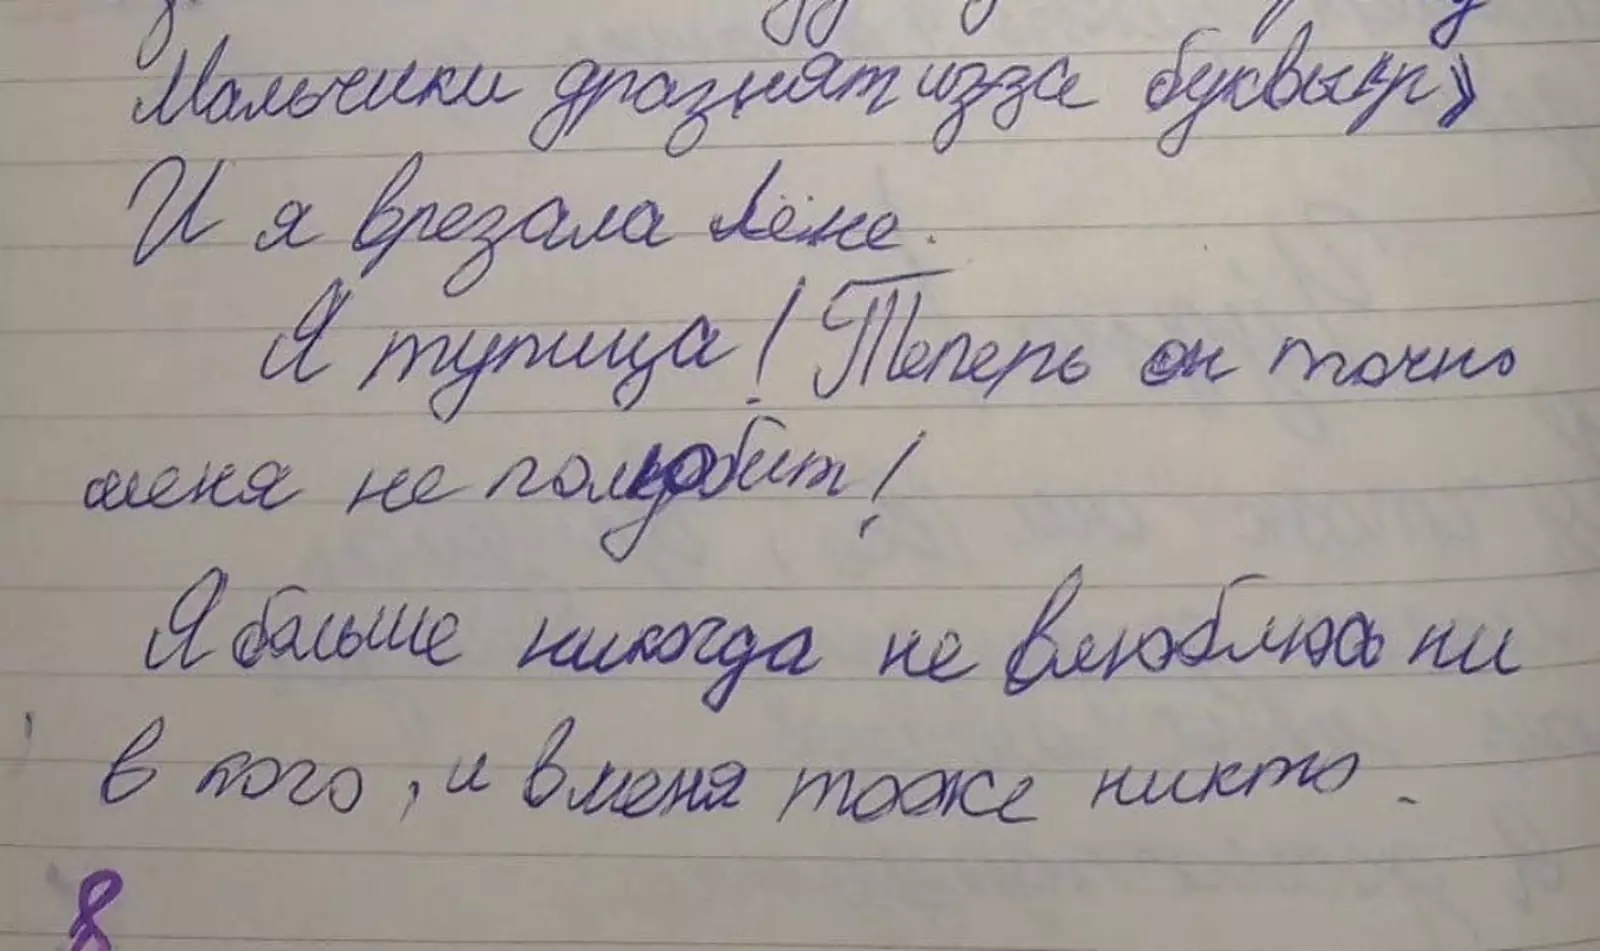 Мальчики дразнят из-за буквы «р»
И я врезала Лёне.
Я тупица! Теперь он точно
меня не полюбит!
Я больше никогда не влюблюсь ни
в кого, и в меня тоже никто.
8